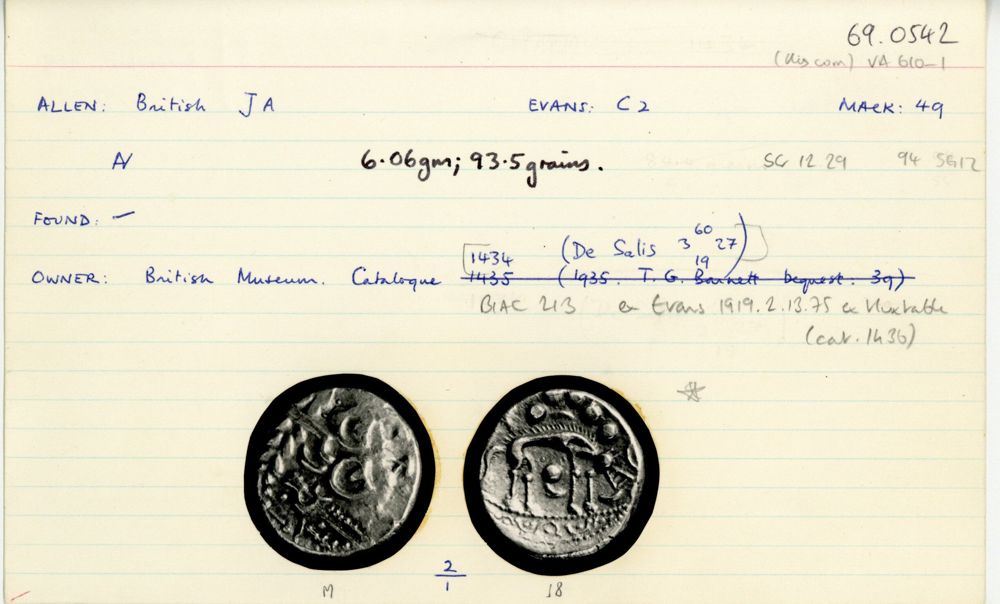 69.0542
VA 610-1
ALLEN: British JA EVANS: C2 MACK: 49
6.06gm; 93.5 grains. SG 12.29 94 SG12
FOUND: —
1434 (De Salis 3 60/19 27)
OWNER: British Museum. Catalogue 1435 (1935. T. G. Barnett bequest. 39)
BMC 213 ex Evans 1919.2.13.75 ex Huxtable
(cat. 1436)
2/1
M 18